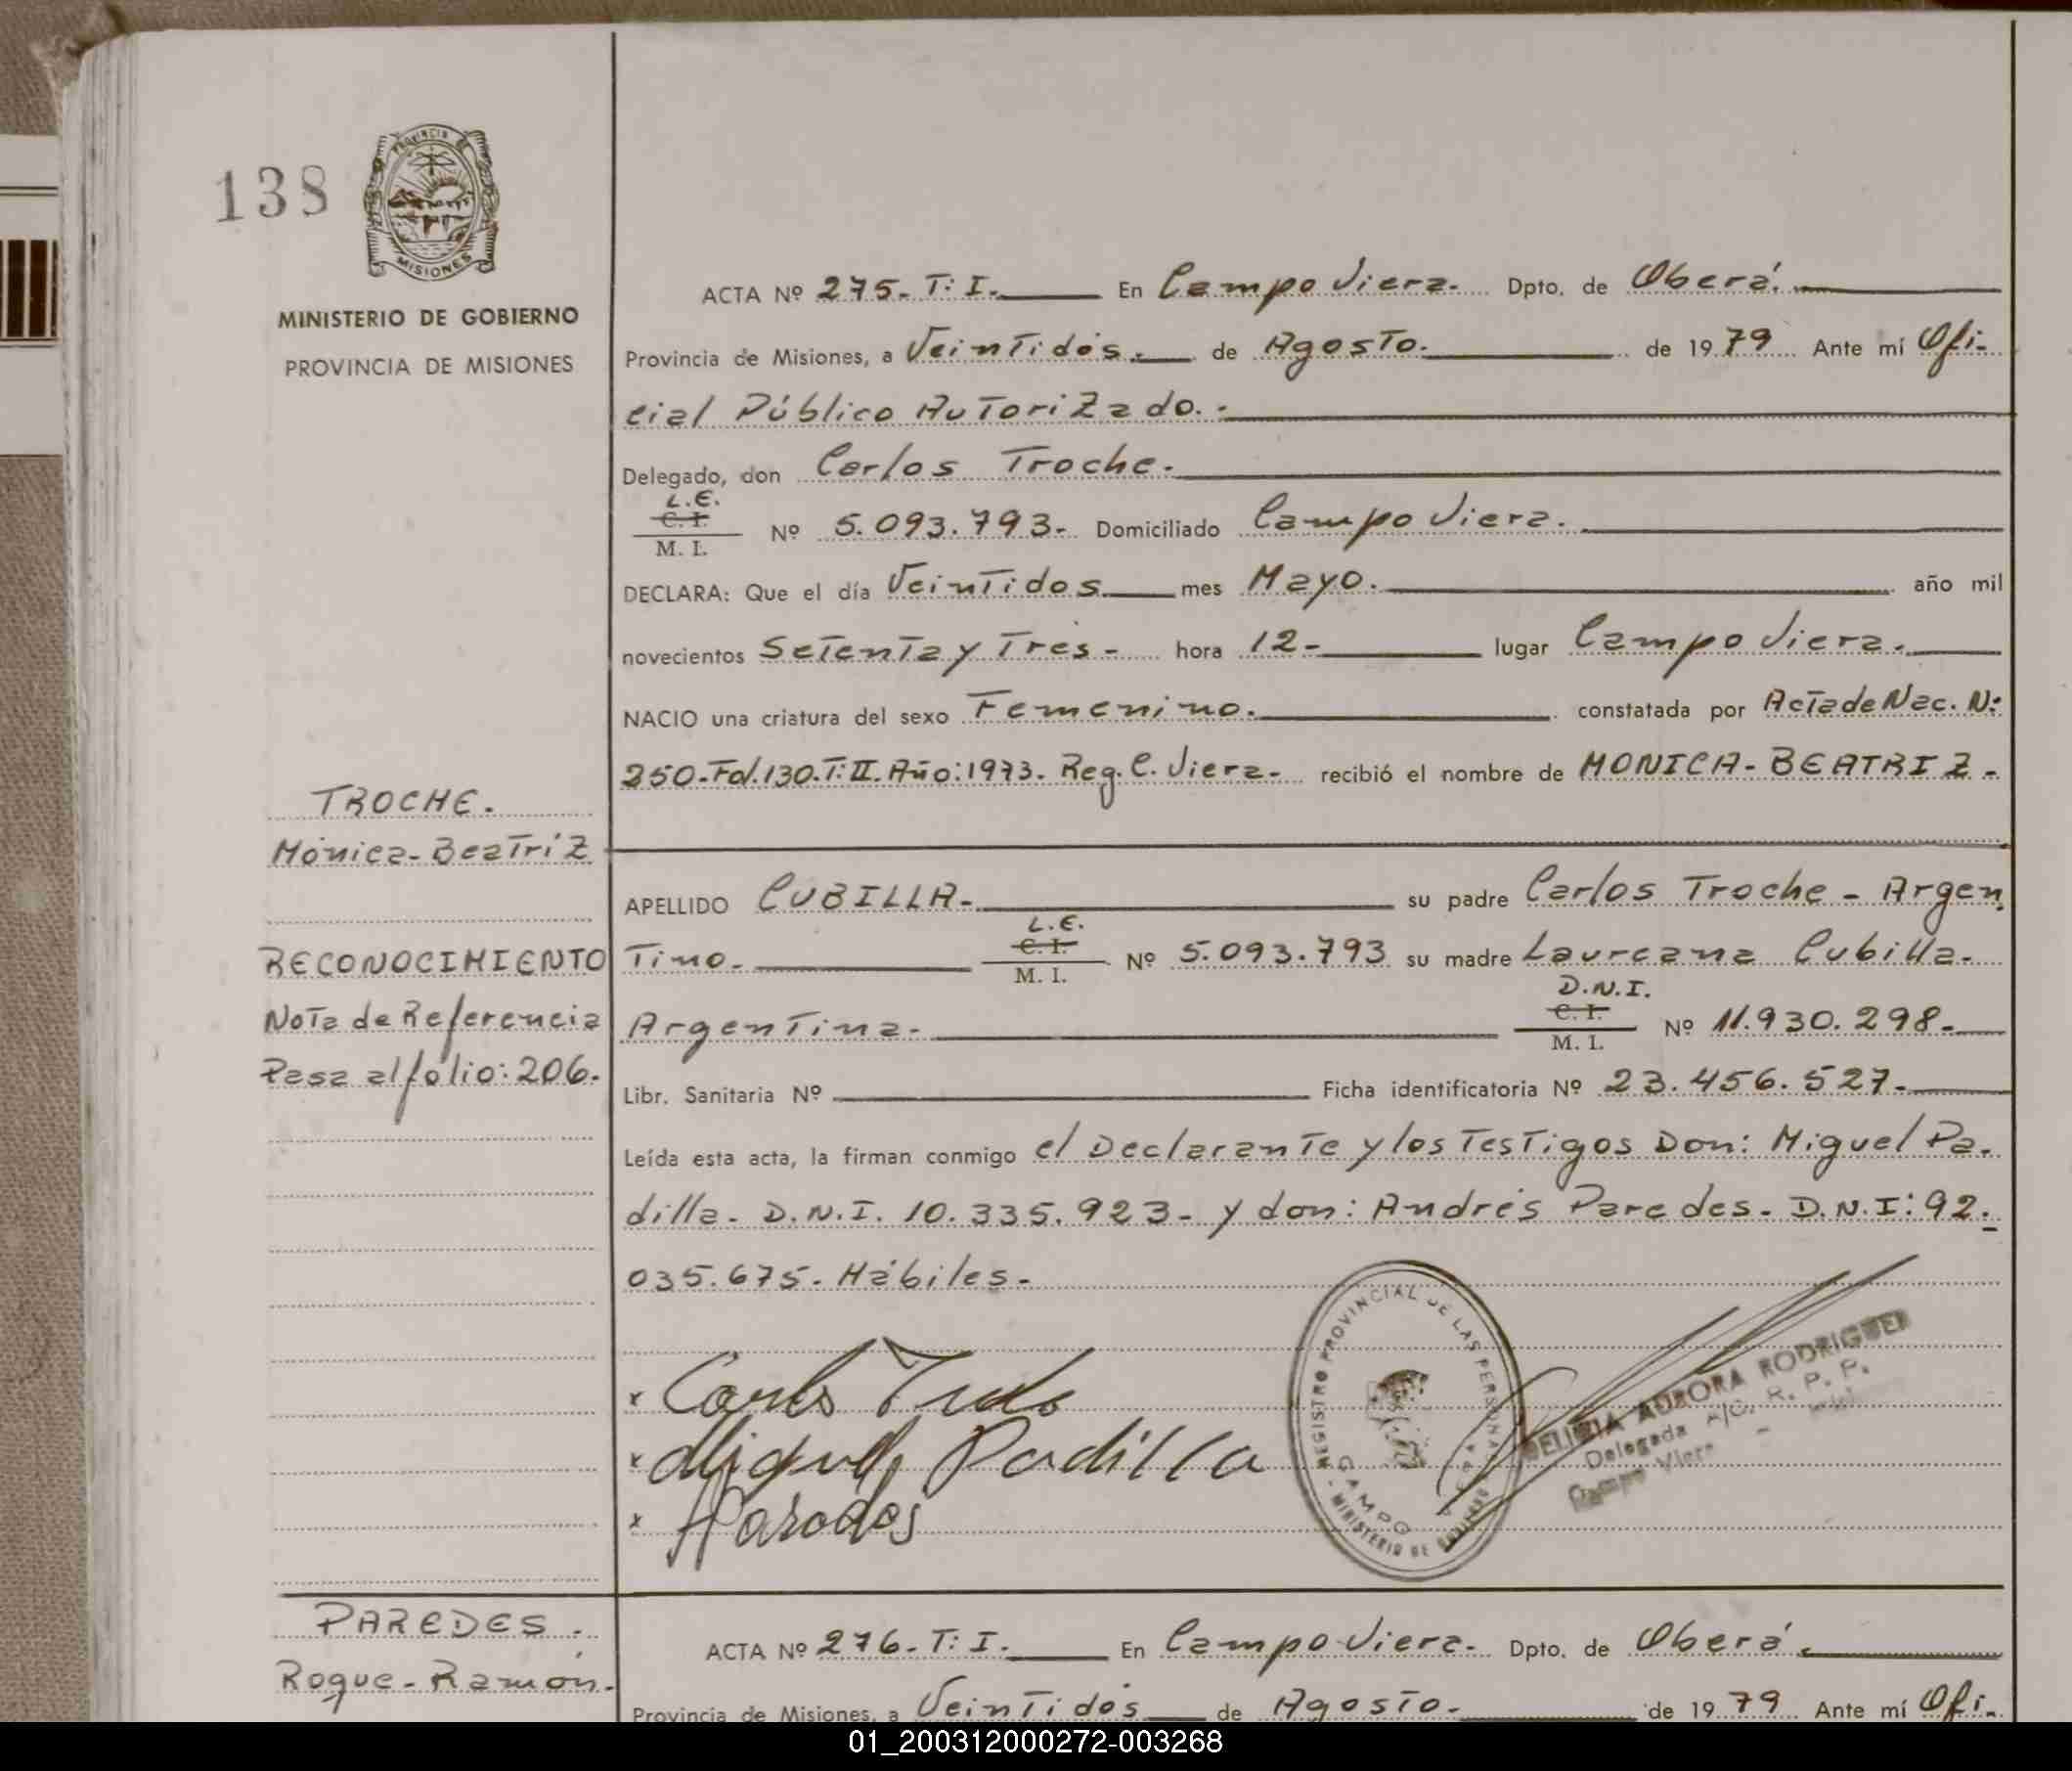 138
PROVINCIA DE
MISIONES
MINISTERIO DE GOBIERNO
PROVINCIA DE MISIONES
ACTA Nº 275. T: I. En Campo Viera. Dpto. de Oberá.
Provincia de Misiones, a Veintidós. de Agosto. de 1979 Ante mí Ofi-
cial Público Autorizado.-
Delegado, don Carlos Troche.
L.E.
C. I.
M. I. Nº 5.093.793- Domiciliado Campo Viera.
DECLARA: Que el día Veintidos mes Mayo. año mil
novecientos Setenta y Tres - hora 12- lugar Campo Viera.
NACIO una criatura del sexo Femenino. constatada por Acta de Nac. N:
250-Fol.130.T:II.Año:1973. Reg. C. Viera- recibió el nombre de MONICA-BEATRIZ-
TROCHE.
Mónica-Beatríz
RECONOCIMIENTO
Nota de Referencia
Pasa al fólio: 206.
APELLIDO CUBILLA- su padre Carlos Troche - Argen
L.E.
C. I.
tino. M. I. Nº 5.093.793 su madre Laureana Cubilla-
D.N.I.
C. I.
Argentina. M. I. Nº 11.930.298-
Libr. Sanitaria Nº Ficha identificatoria Nº 23.456.527-
Leída esta acta, la firman conmigo el Declarante y los Testigos Don: Miguel Pa.
dilla- D.N.I. 10.335.923- y don: Andrés Paredes- D.N.I: 92.
035.675- Hábiles-
x Carlos
x Miguel Padilla
x
REGISTRO PROVINCIAL DE LAS PERSONAS
CAMPO
- MINISTERIO DE
AURORA RODRIGUEZ
Delegada A/C. R. P. P.
Campo Viera
PAREDES.
Roque-Ramón.
ACTA Nº 276. T: I. En Campo Viera. Dpto. de Oberá.
Provincia de Misiones, a Veintidós de Agosto- de 1979 Ante mí Ofi.
01_200312000272-003268